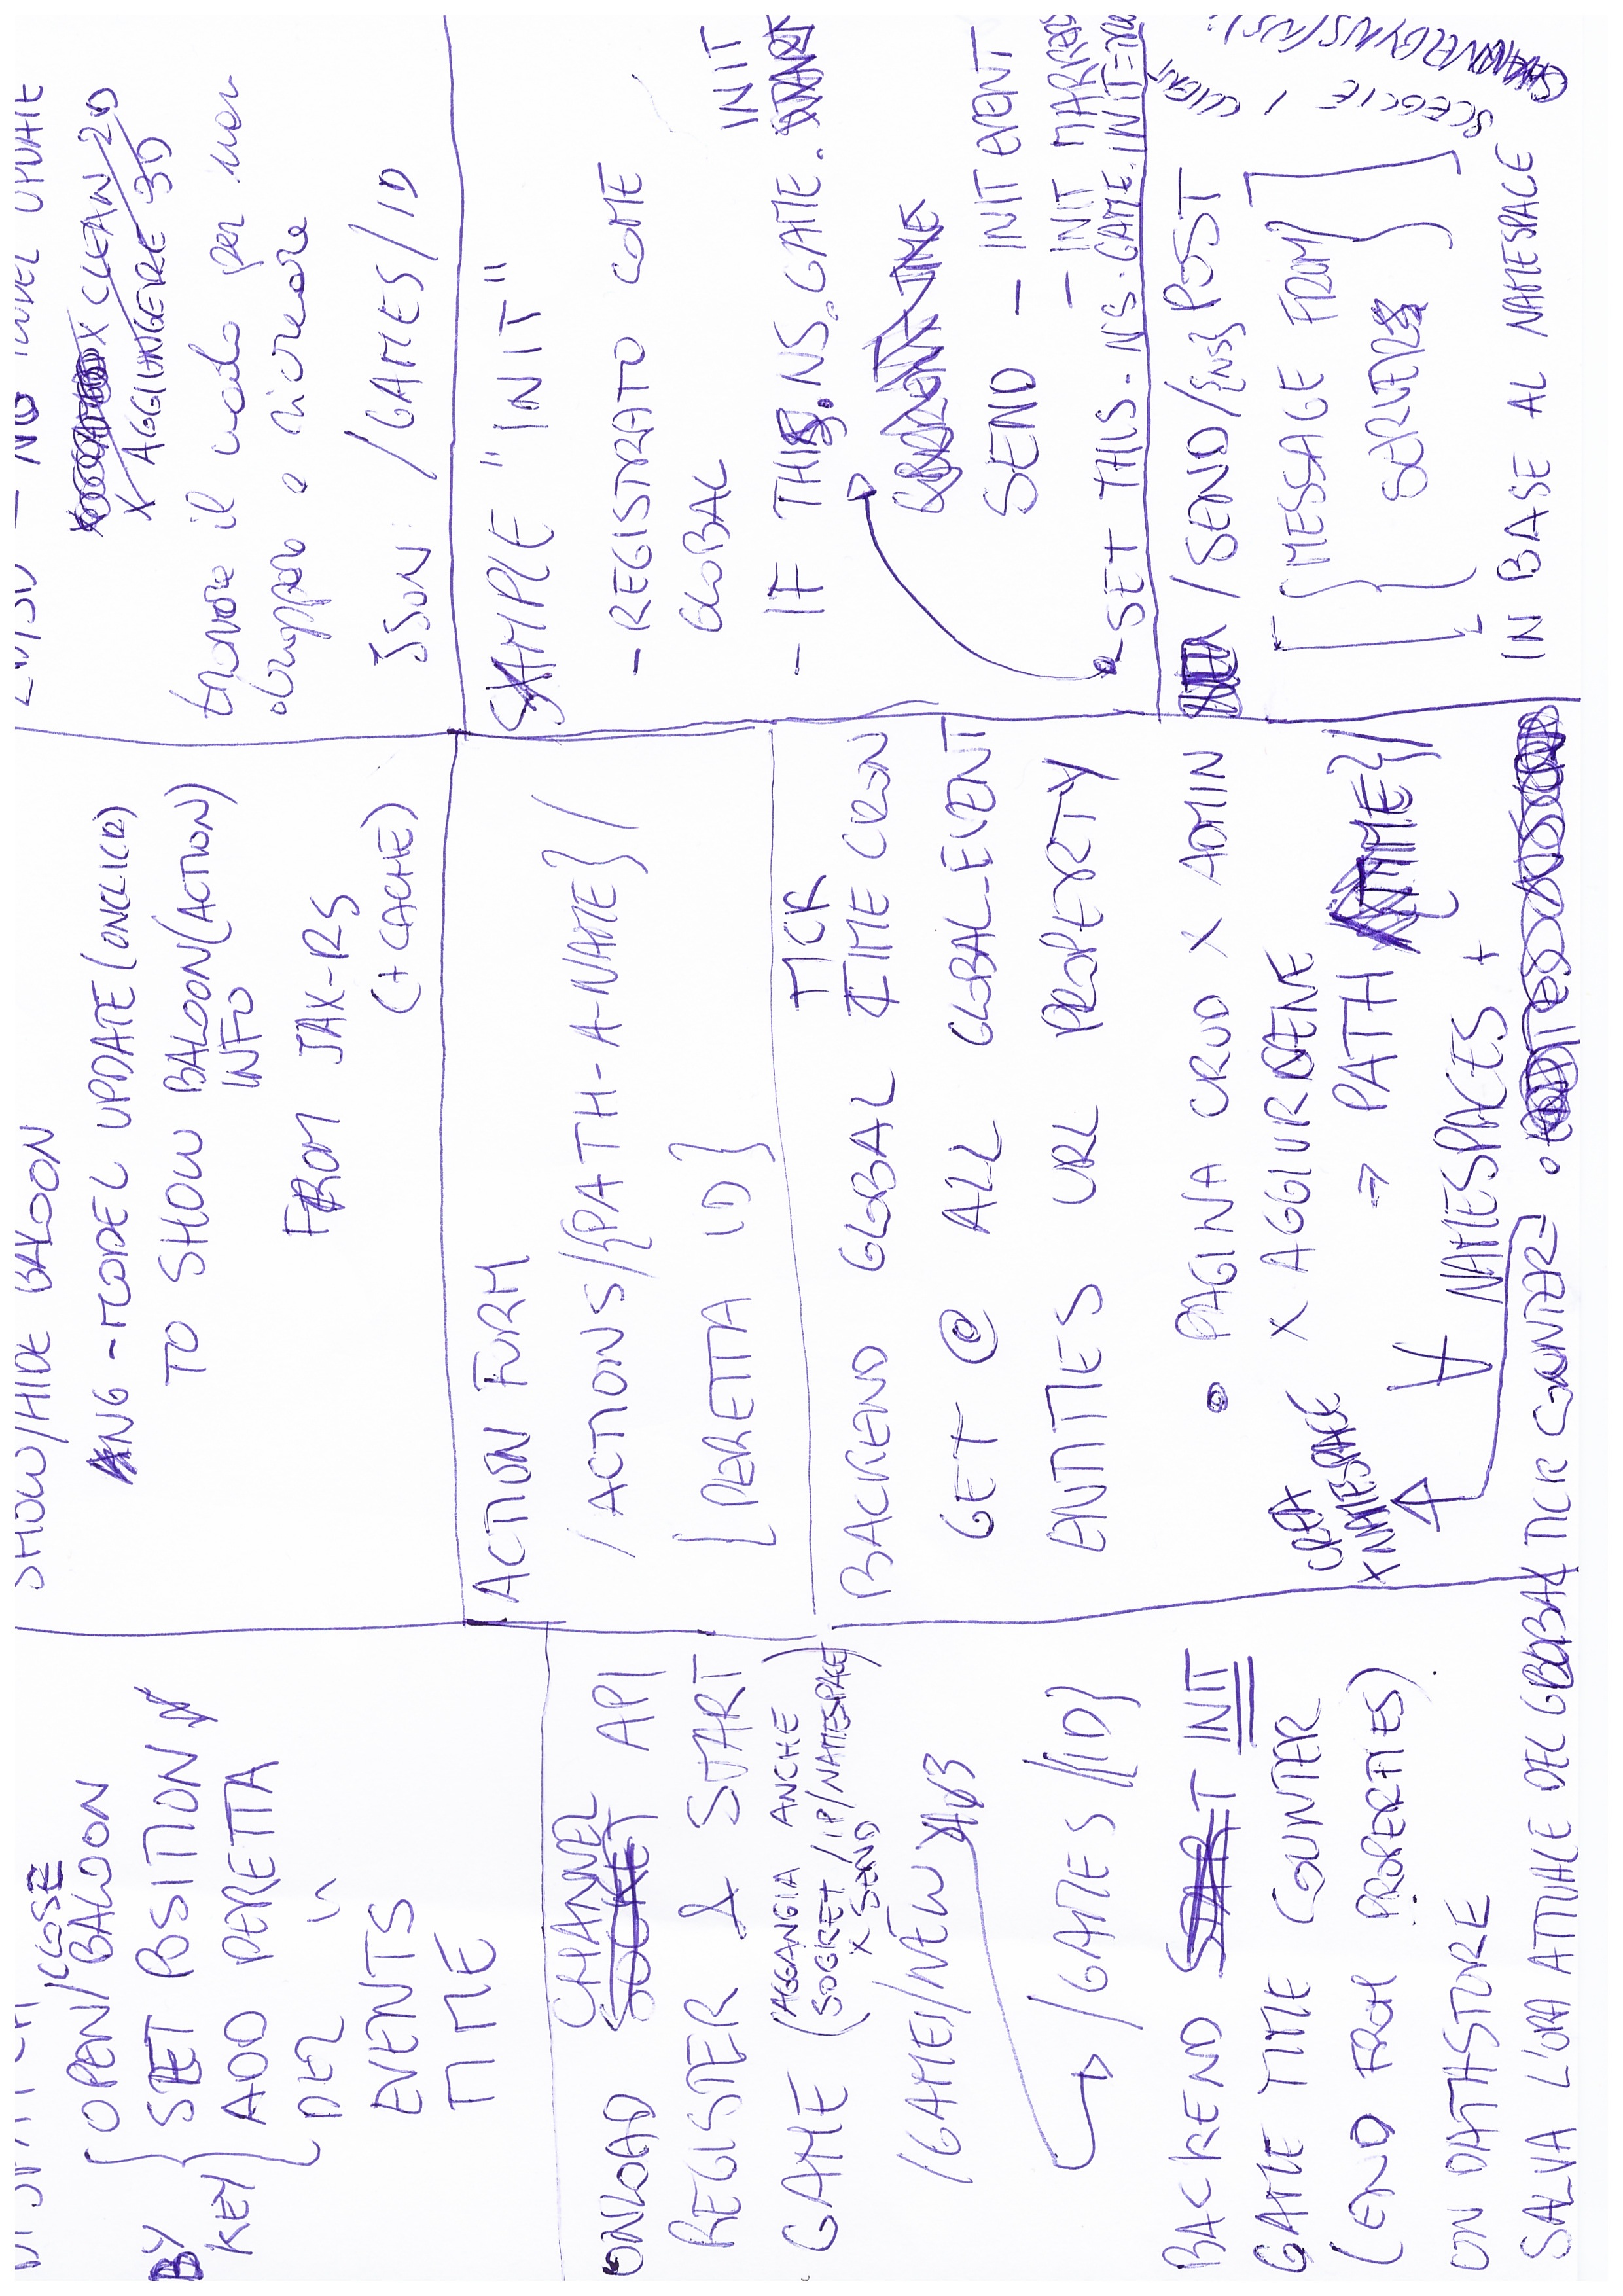 OPEN/CLOSE
BALOON
BY
KEY
SET POSITION
ADD PERETTA
DEL "
EVENTS
TIME
ONLOAD CHANNEL API
REGISTER & START
GAME (AGGANGIA ANCHE
SOCKET/IP/NAMESPACE)
X SEND
/GAMES/NEW
/GAMES/{ID}
BACKEND START INIT
GAME TIME COUNTER
(END FROM PROPERTIES)
ON DATASTORE
SALVA L'ORA ATTUALE DEL GLOBAL TICK COUNTER
SHOW/HIDE BALOON
NG-MODEL UPDATE (ONCLICK)
TO SHOW BALOON (ACTION)
INFO
FROM JAX-RS
(+CACHE)
ACTION FORM
/ACTIONS/{PATH-A-NAME}/
{PERETTA ID}
TICK
BACKEND GLOBAL TIME CRON
GET @ ALL GLOBAL-EVENT
ENTITIES URL PROPERTY
• PAGINA CRUD X ADMIN
X AGGIURNENE
CREA
X NAMESPACE
⇒ PATH
∀ NAMESPACES +
- NO MODEL UPDATE
X CLEAN 2D
X AGGIUNGERE 3D
trovare il modo per non
JSON: /GAMES/ID
SAMPLE "INIT"
- REGISTRATO COME
GLOBAL
- IF THIS.NS.GAME.INIT
SEND - INIT EVENT
- INIT
- SET THIS.NS.GAME.INIT=
/SEND/{NS} POST
[{MESSAGE FROM}
SERVER}]
SCEGLIE I CLIENT
IN BASE AL NAMESPACE